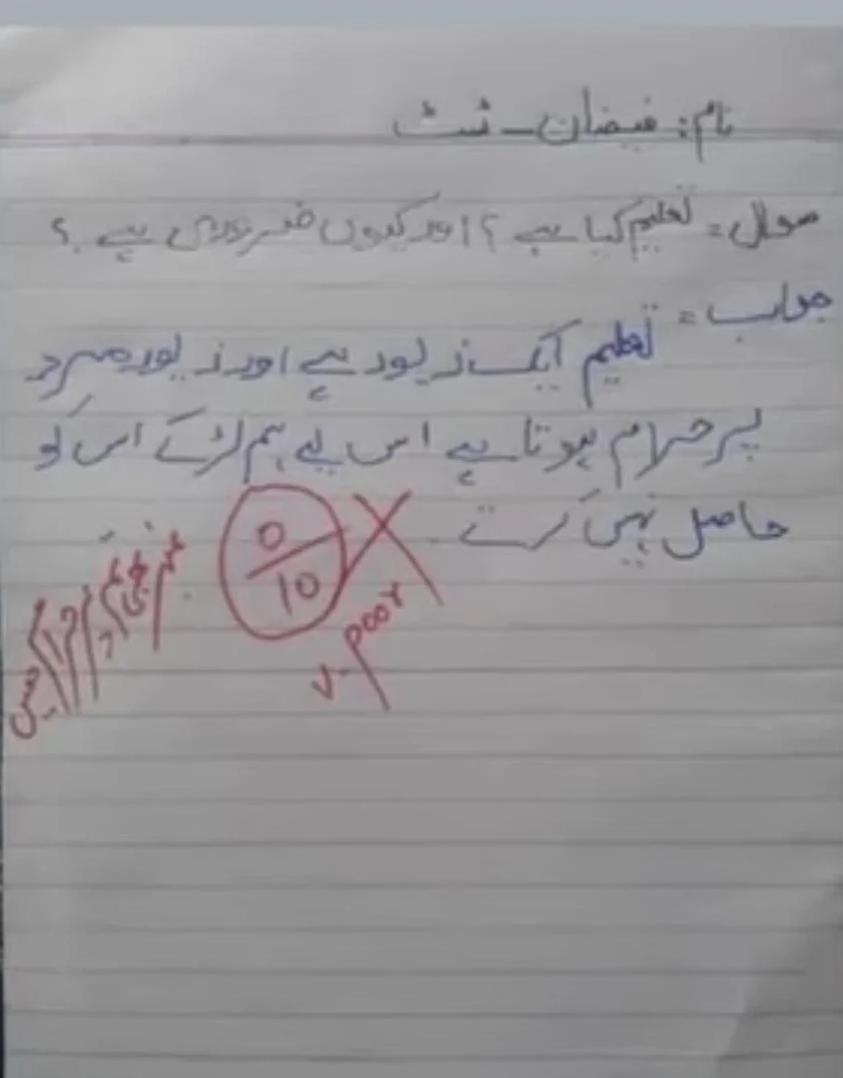 نام: فیضان - ٹسٹ
سوال = تعلیم کیا ہے ؟ اور کیوں ضروری ہے ؟
جواب = تعلیم ایک زیور ہے اور زیور مرد
پر حرام ہوتا ہے اس لیے ہم لڑکے اس کو
حاصل نہیں کرتے -
0/10
v. poor